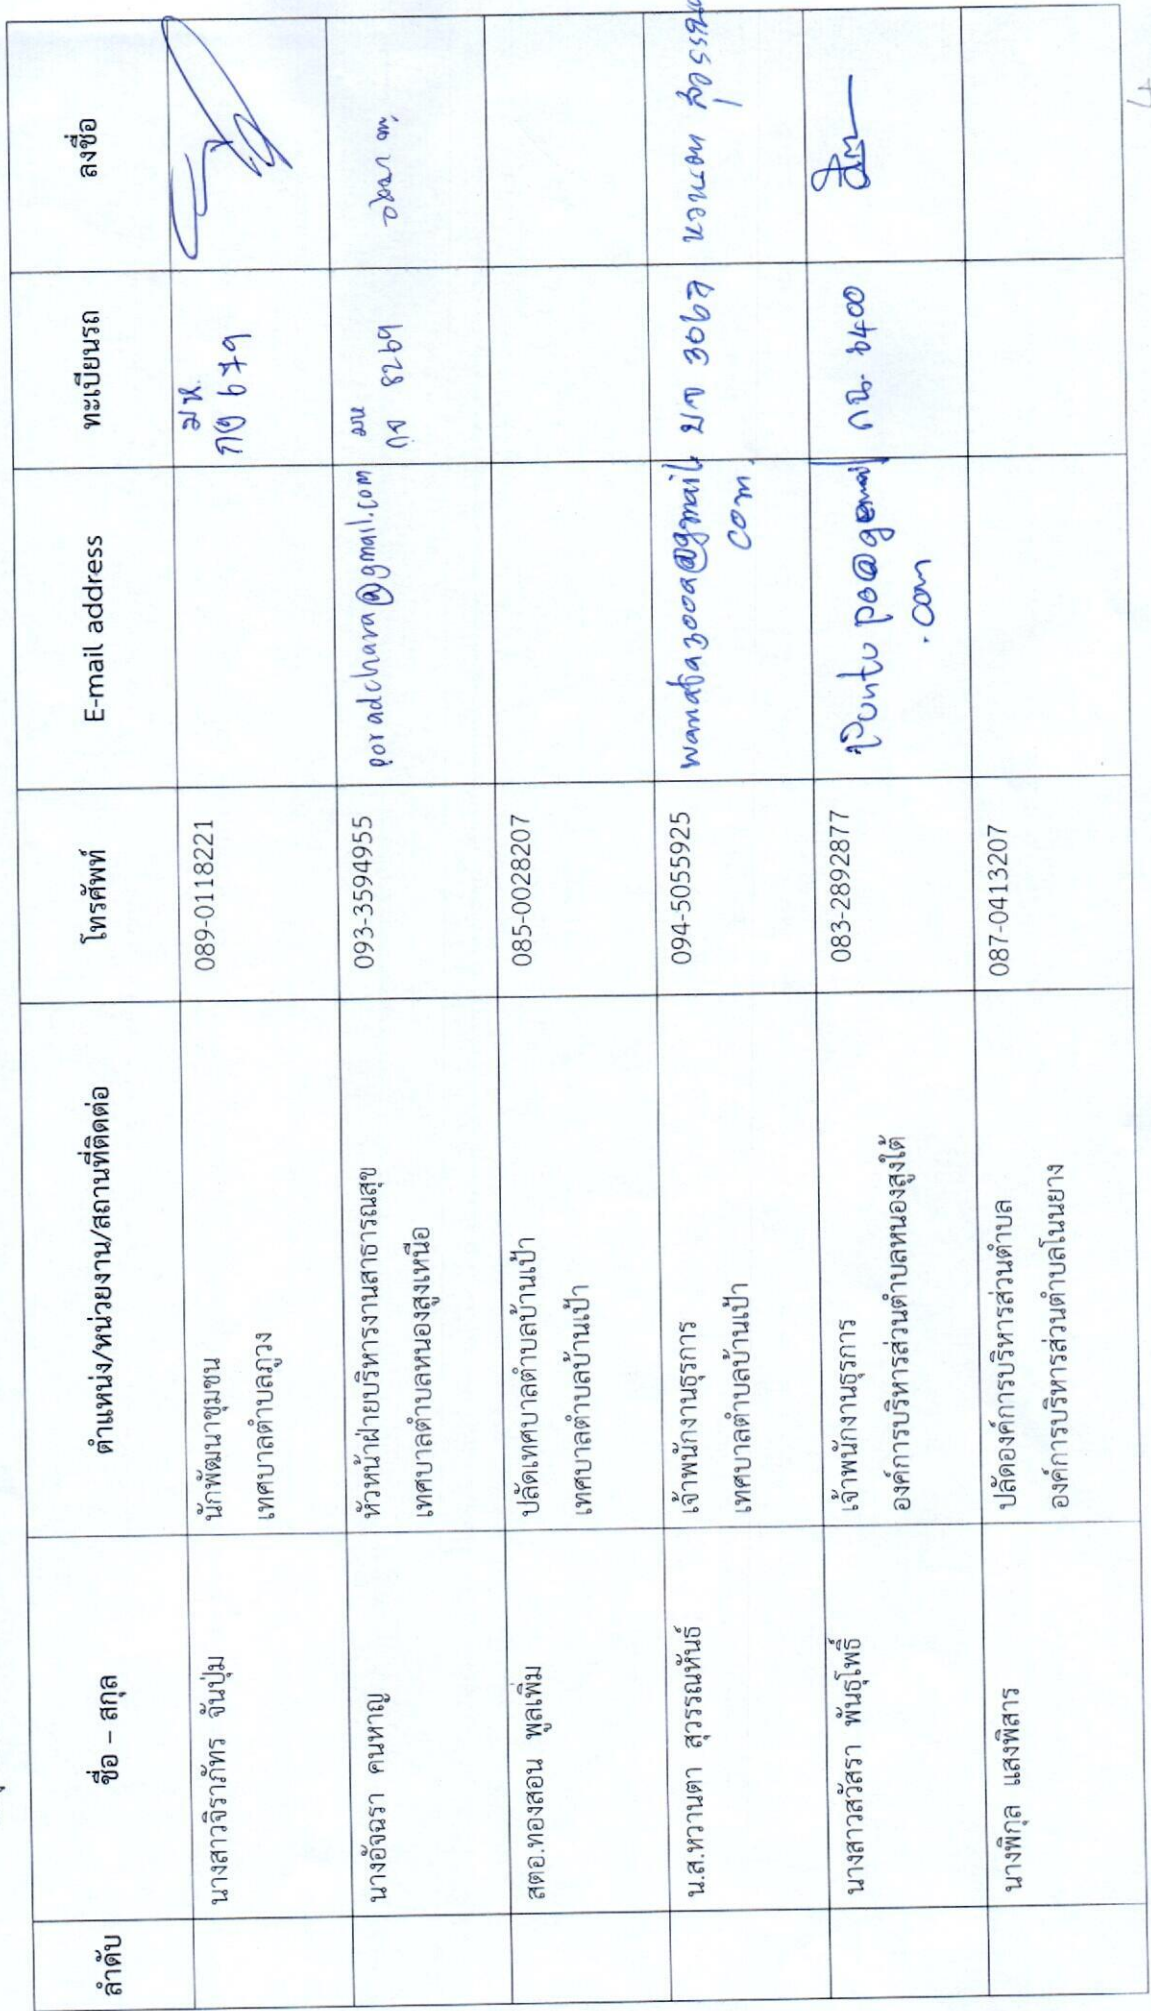 ลำดับ
ชื่อ – สกุล
ตำแหน่ง/หน่วยงาน/สถานที่ติดต่อ
โทรศัพท์
E-mail address
ทะเบียนรถ
ลงชื่อ
นางสาวจิราภัทร จันปุ่ม
นักพัฒนาชุมชน
เทศบาลตำบลภูวง
089-0118221
มห.
679
นางอัจฉรา คนหาญ
หัวหน้าฝ่ายบริหารงานสาธารณสุข
เทศบาลตำบลหนองสูงเหนือ
093-3594955
poradchara@gmail.com
มห
8269
สตอ.ทองสอน พูลเพิ่ม
ปลัดเทศบาลตำบลบ้านเป้า
เทศบาลตำบลบ้านเป้า
085-0028207
น.ส.หวานตา สุวรรณหันธ์
เจ้าพนักงานธุรการ
เทศบาลตำบลบ้านเป้า
094-5055925
com.
หวานตา
นางสาวสวัสรา พันธุโพธิ์
เจ้าพนักงานธุรการ
องค์การบริหารส่วนตำบลหนองสูงใต้
083-2892877
.com
กน. 6400
นางพิกุล แสงพิสาร
ปลัดองค์การบริหารส่วนตำบล
องค์การบริหารส่วนตำบลโนนยาง
087-0413207
4